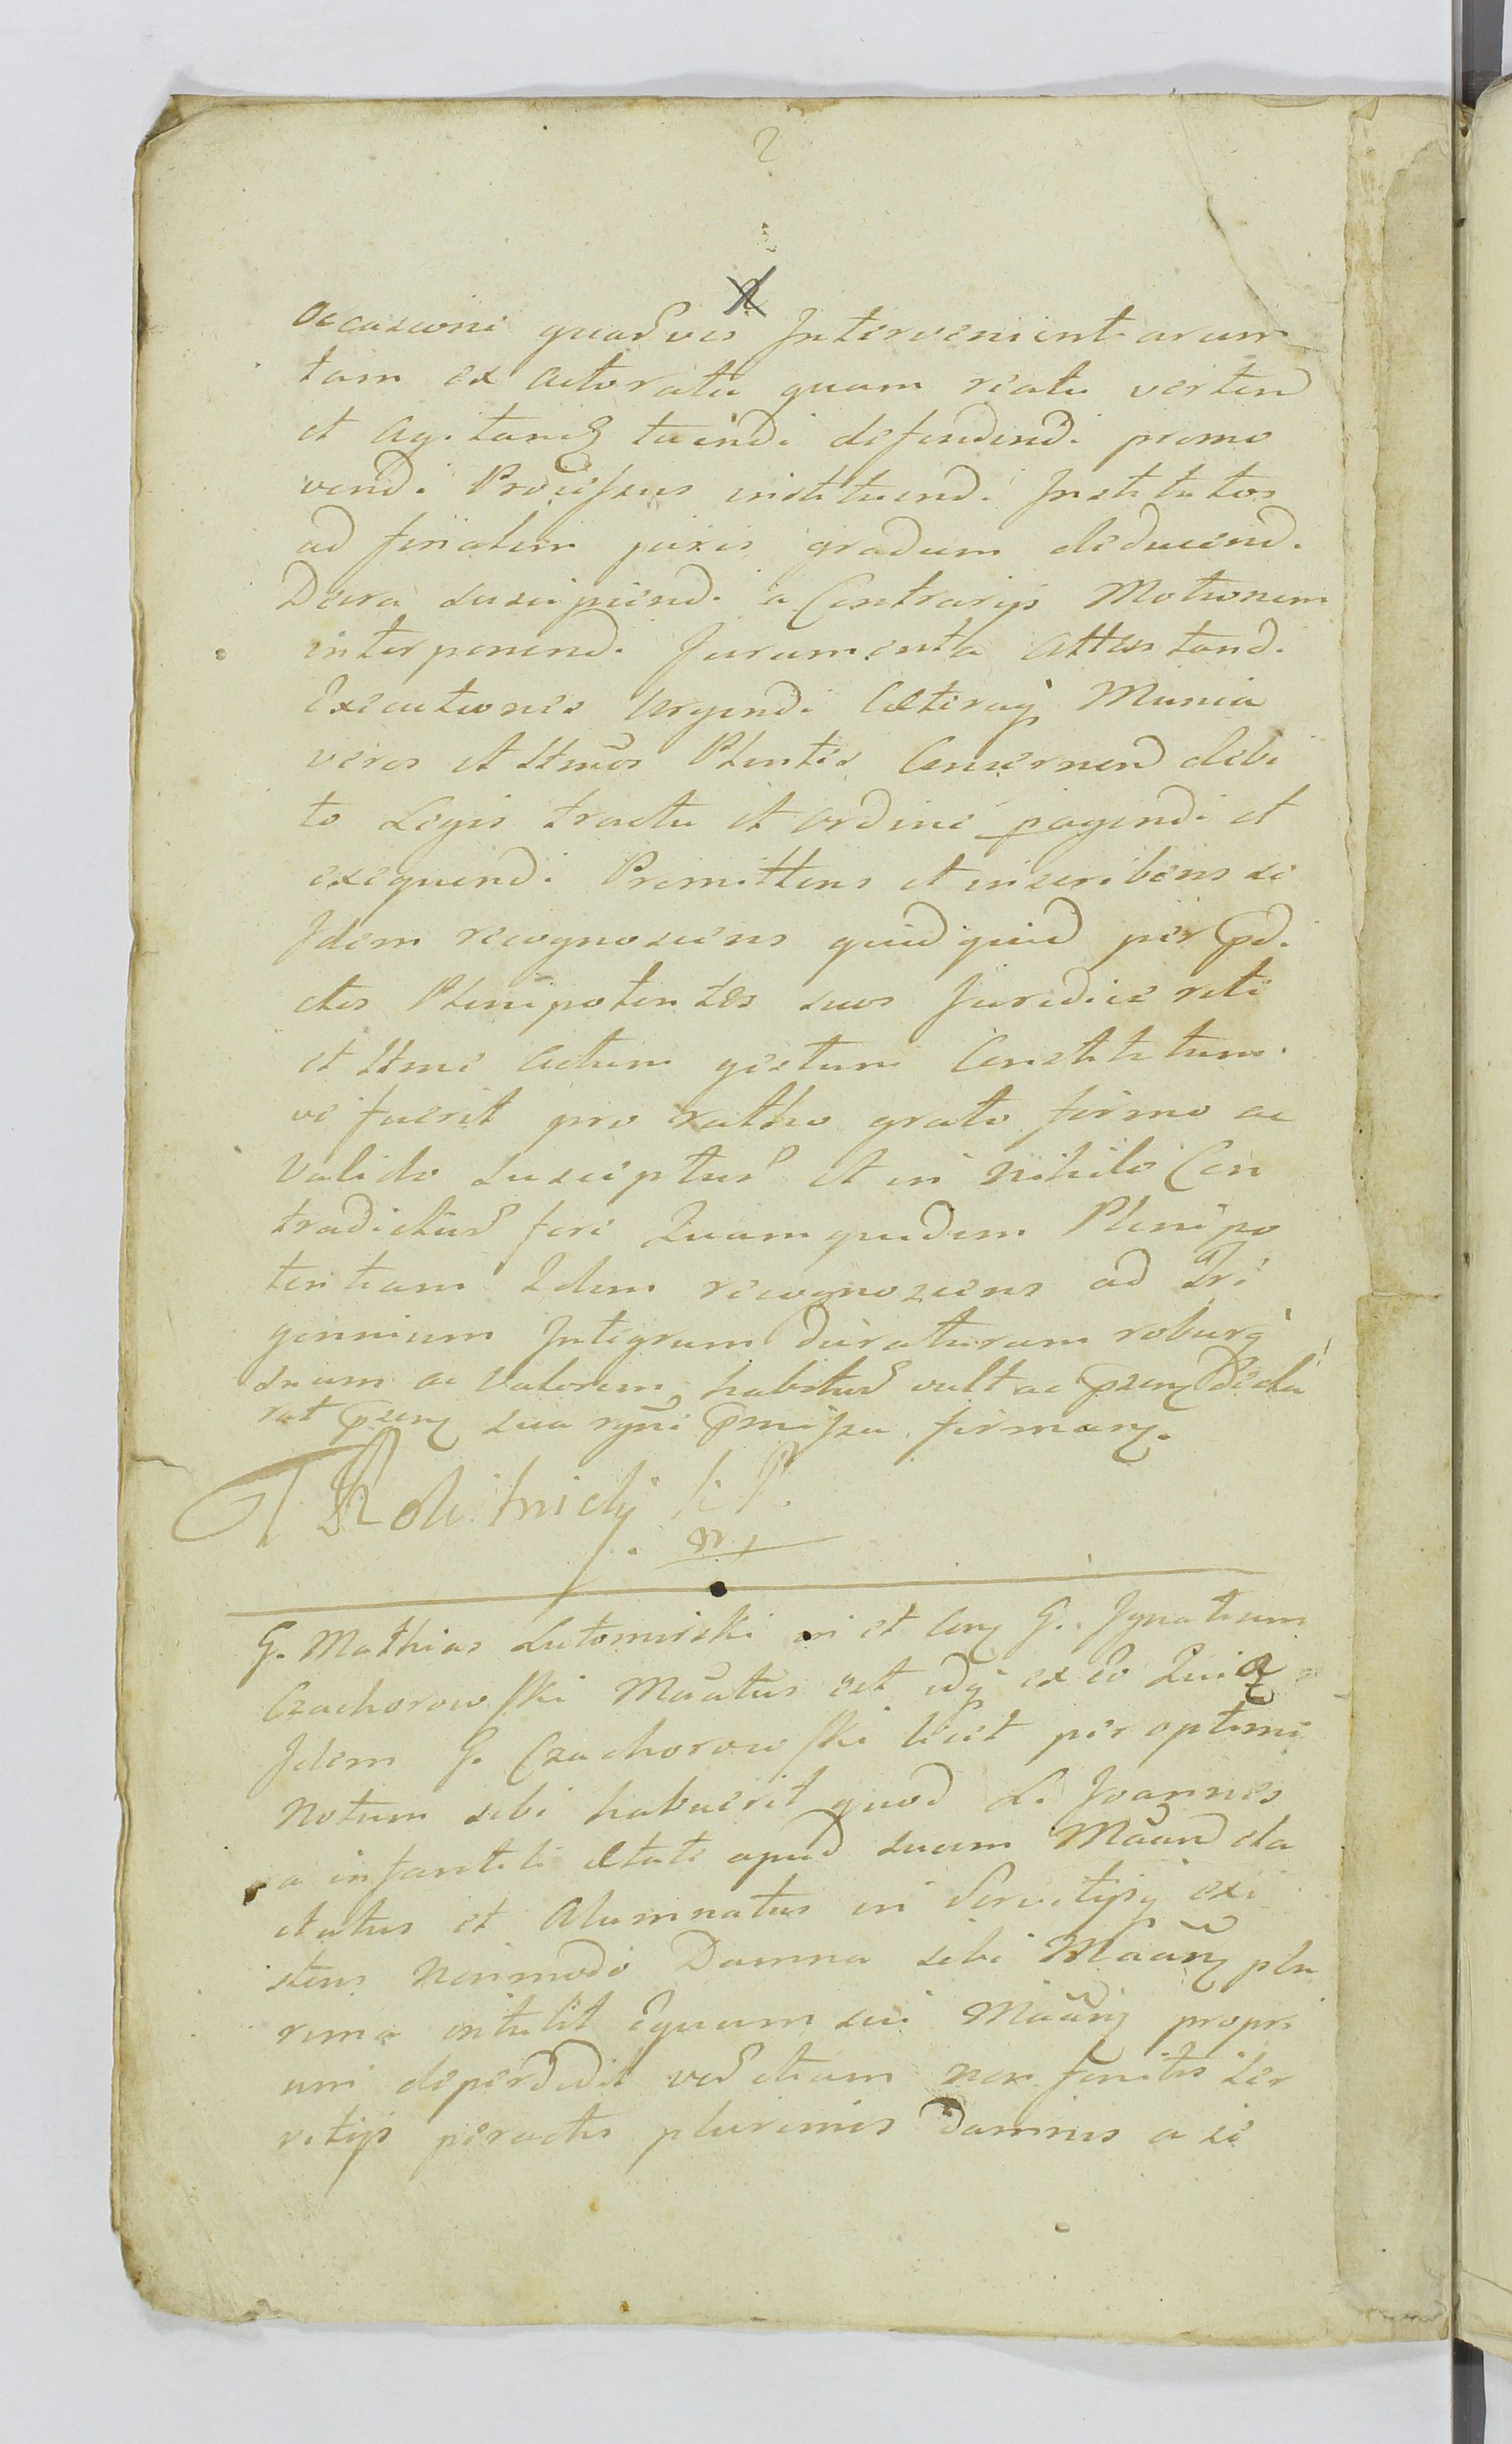 2
occasione quarvis Intervenientiarum
tam ex actoratu quam reatu verten
et agitan tuendi defendendi promo
vendi Processus instituendi Institutos
ad finalem juris gradum deducend.
Decra suscipiendi a Contrarijs Motionem
interponend. Juramenta Attestand.
Executiones Urgendi Cæteraq Munia
veros et Ltmos Plentes Concernen debi
to Legis tractu et ordine pagendi et
exequendi Promittens et inscribens se
Idem recognoscens quidquid per pdi
ctos Plenipotentes suos Juridice rite
et Ltme actum gestum Constitutum
ve fuerit pro ratho grato firmo ac
Valido suscepturs et in nihilo Con
tradicturs fore Quam quidem Plenipo
tentiam Idem recognoscens ad Tri
gennium Integrum duraturam roburq
suum ac Valorem habitur vult ac pzen Decla
rat pzen sua mpni pmissa firman.
G. Mathias Lutomirski in et Con G. Ignatium
Czachorowski Mõatus est idq ex eo Quia
Idem G. Czachorowski licet per optime
Notum sibi habuerit quod L. Joannes
a infantili ætate apud suum Mõan ela
ctatus et Alumnatus in Servitijsq exi
stens Nonmodo Damna sibi Mõan plu
rima intulit Equum sui Mõan propri
um deperdidit ver etiam non finitis ser
vitijs peractis plurimis Damnis a se